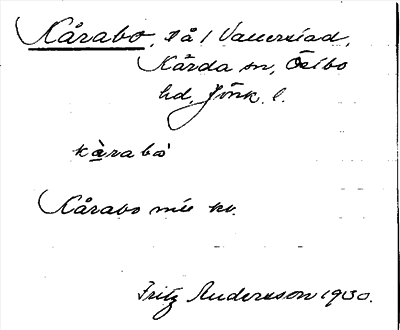 Kårabo, på / Vallerstad,
Kårda sn, Östbo
hd, Jönk. l.
kàrabò
Kårabo mée kv.
Fritz Andersson 1930.